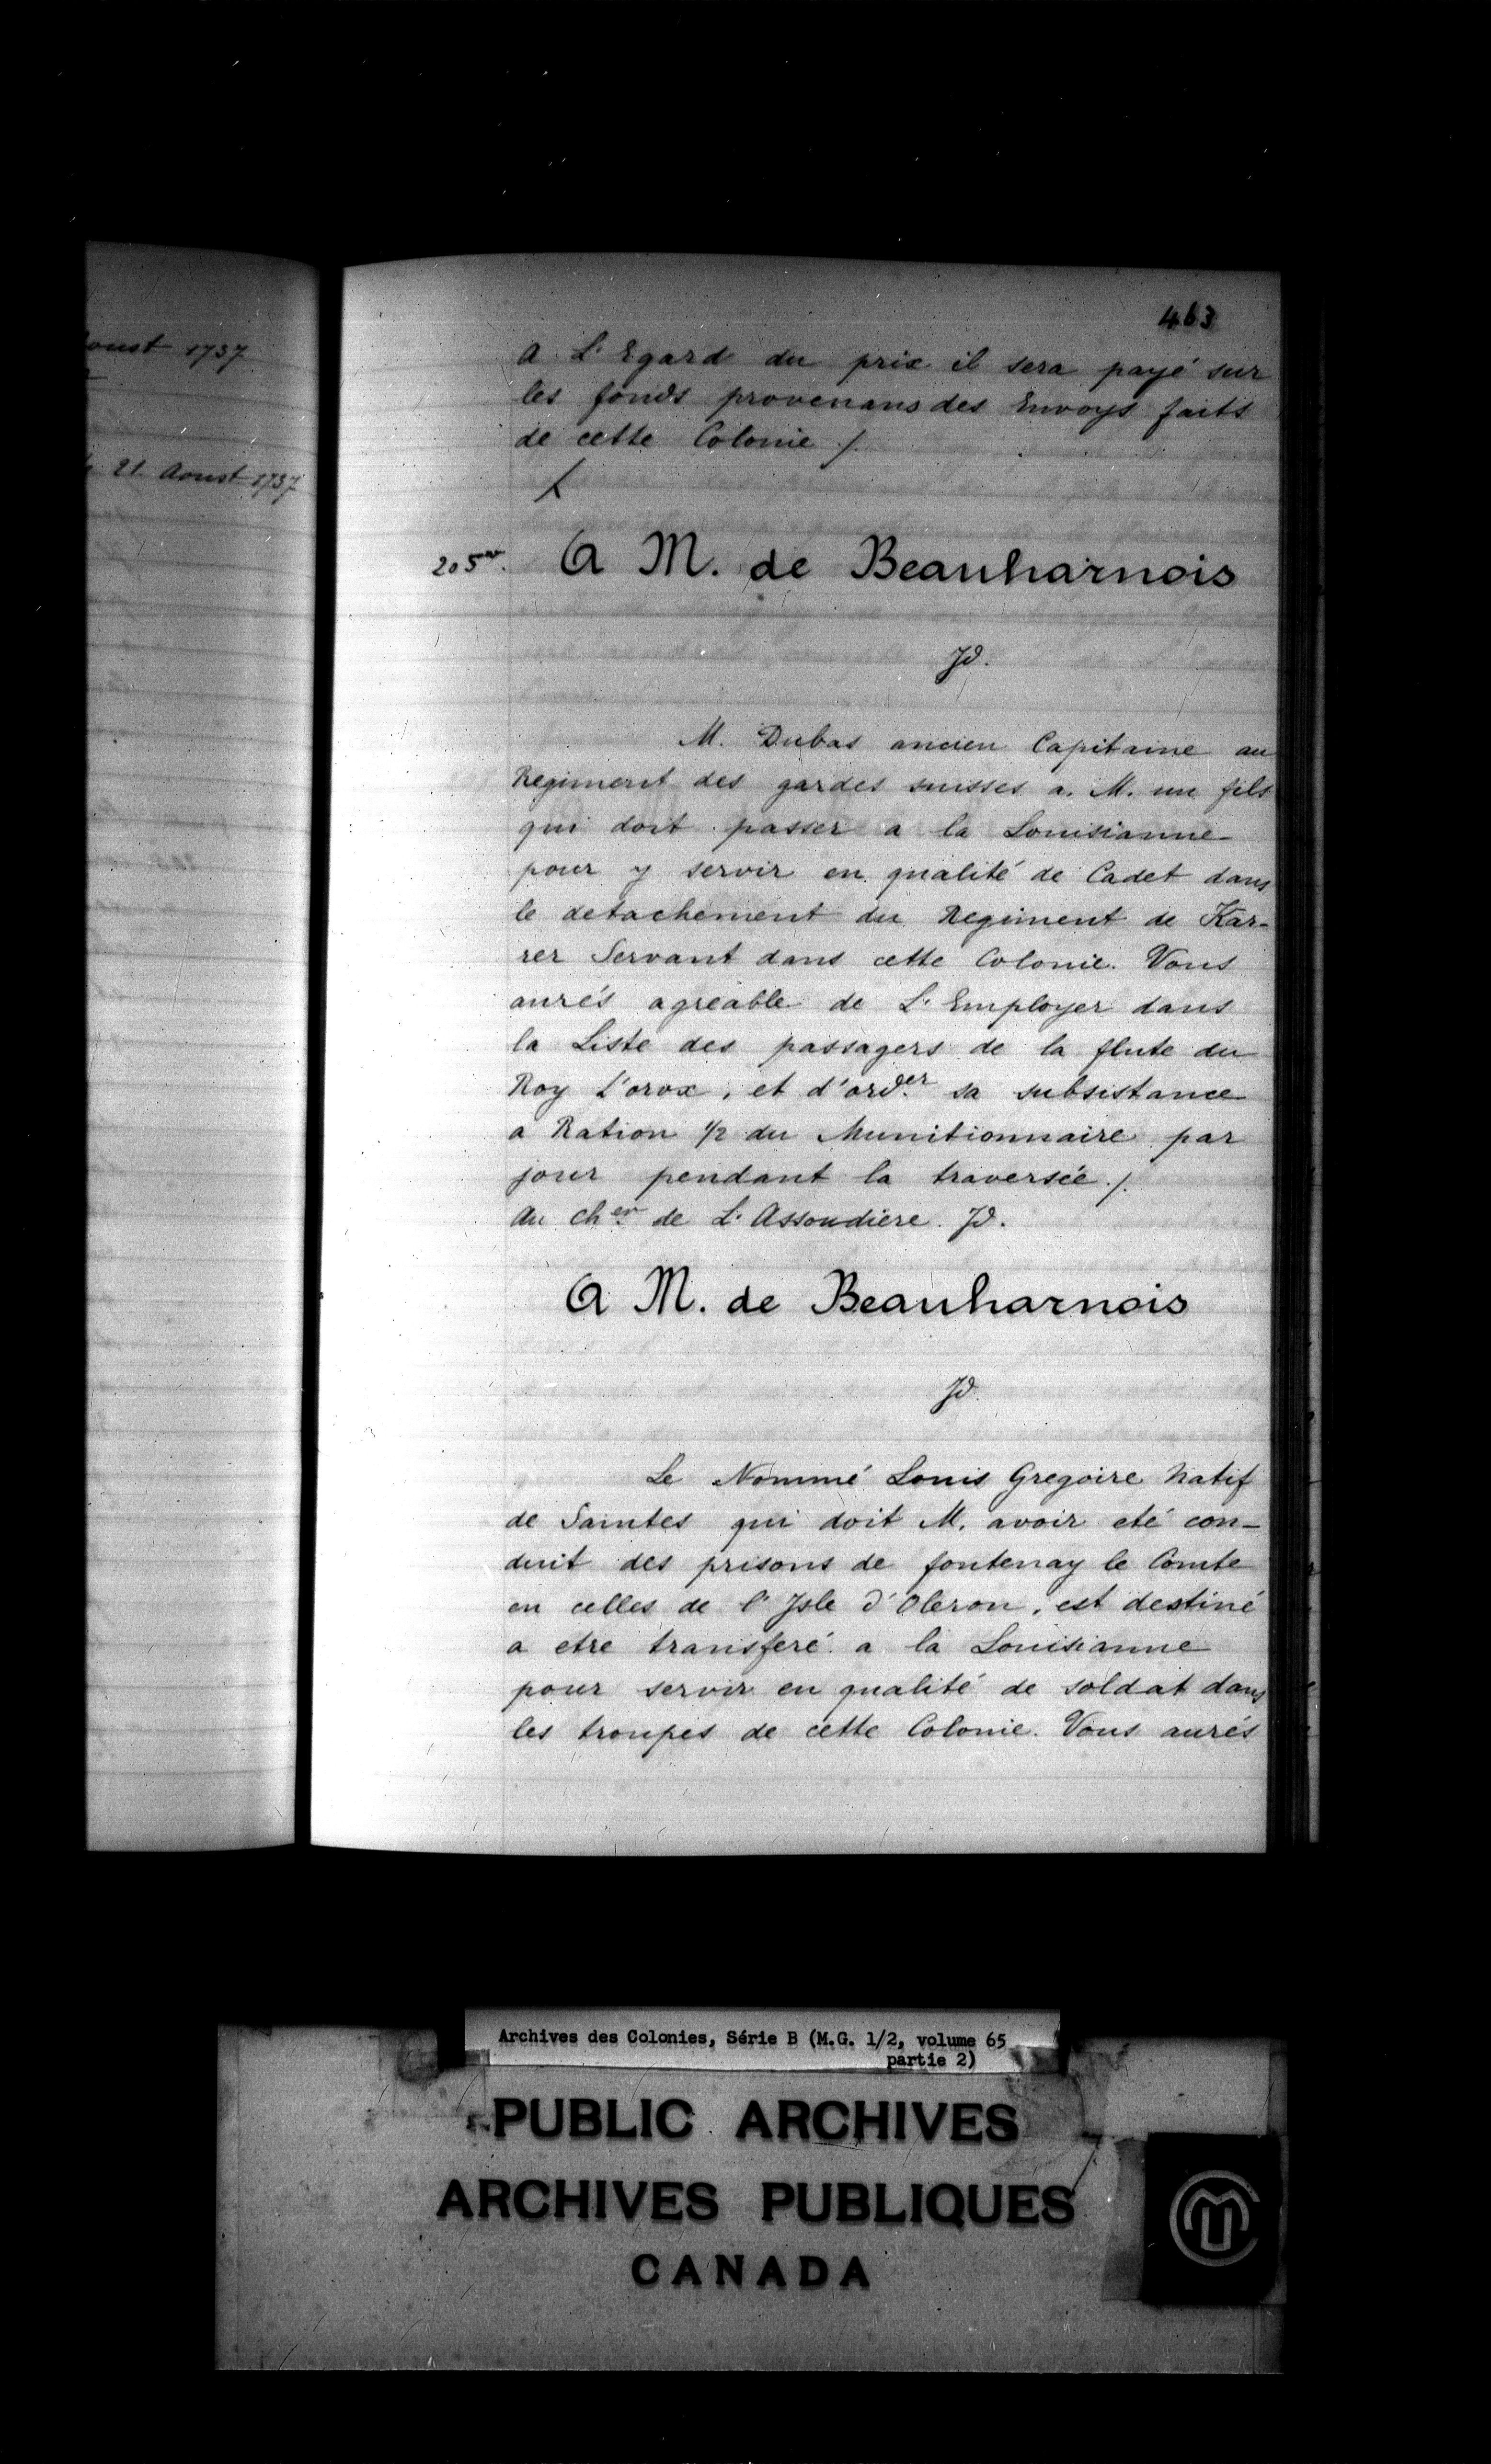 oust 1737
21 Aoust 1737
463
A L'Egard du prix il sera payé sur
les fonds provenans des Envoys faits
de cette Colonie ./.
205vo.
A M. de Beauharnois
Jd.
M. Dubas ancien Capitaine au
Regiment des gardes suisses a. M. un fils
qui doit passer a la Louisianne
pour y servir en qualité de Cadet dans
le detachement du Regiment de Kar-
rer Servant dans cette Colonie. Vous
aurés agreable de L'Employer dans
la Liste des passagers de la flute du
Roy L'orox, et d'ord.er sa subsistance
a Ration 1/2 du Munitionnaire par
jour pendant la traversée ./.
Au Ch.er de L'Assoudiere. Jd.
A M. de Beauharnois
Jd.
Le Nommé Louis Gregoire Natif
de Saintes qui doit M. avoir eté con-
duit des prisons de fontenay le Comte
en celles de l'Jsle d'Oleron, est destiné
a etre transferé a la Louisianne
pour servir en qualité de soldat dans
les troupes de cette Colonie. Vous aurés
Archives des Colonies, Série B (M.G. 1/2, volume 65
partie 2)
PUBLIC ARCHIVES
ARCHIVES PUBLIQUES
CANADA